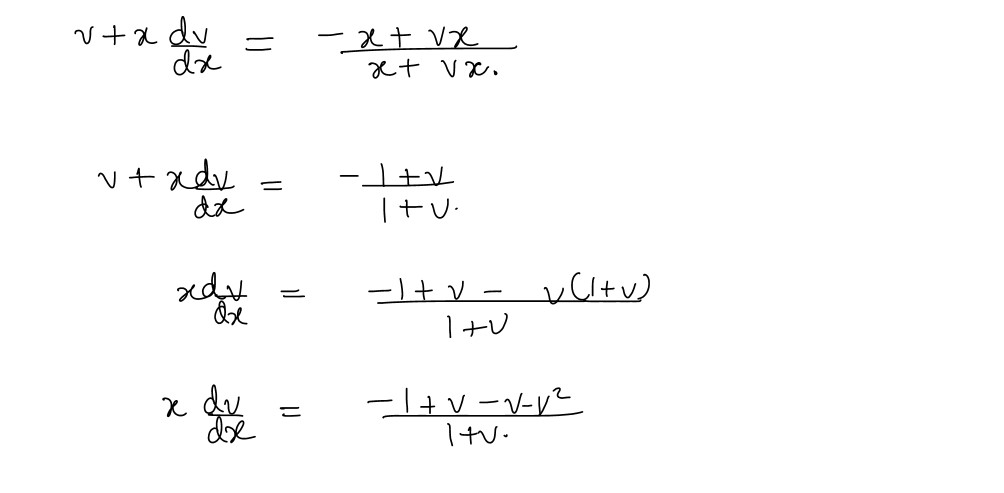 v + x dv/dx = (-x + vx)/(x + vx).
v + x dv/dx = (-1 + v)/(1 + v).
x dv/dx = (-1 + v - v(1+v))/(1+v)
x dv/dx = (-1 + v - v - v²)/(1+v).